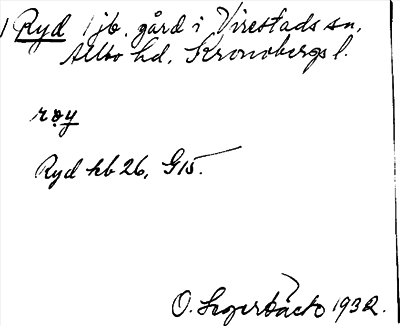 1 Ryd 1 jb. gård i Virestads sn,
Allbo hd, Kronobergs l.
rɷy
Ryd hb 26, G15.
O. Segerbäck 1932.